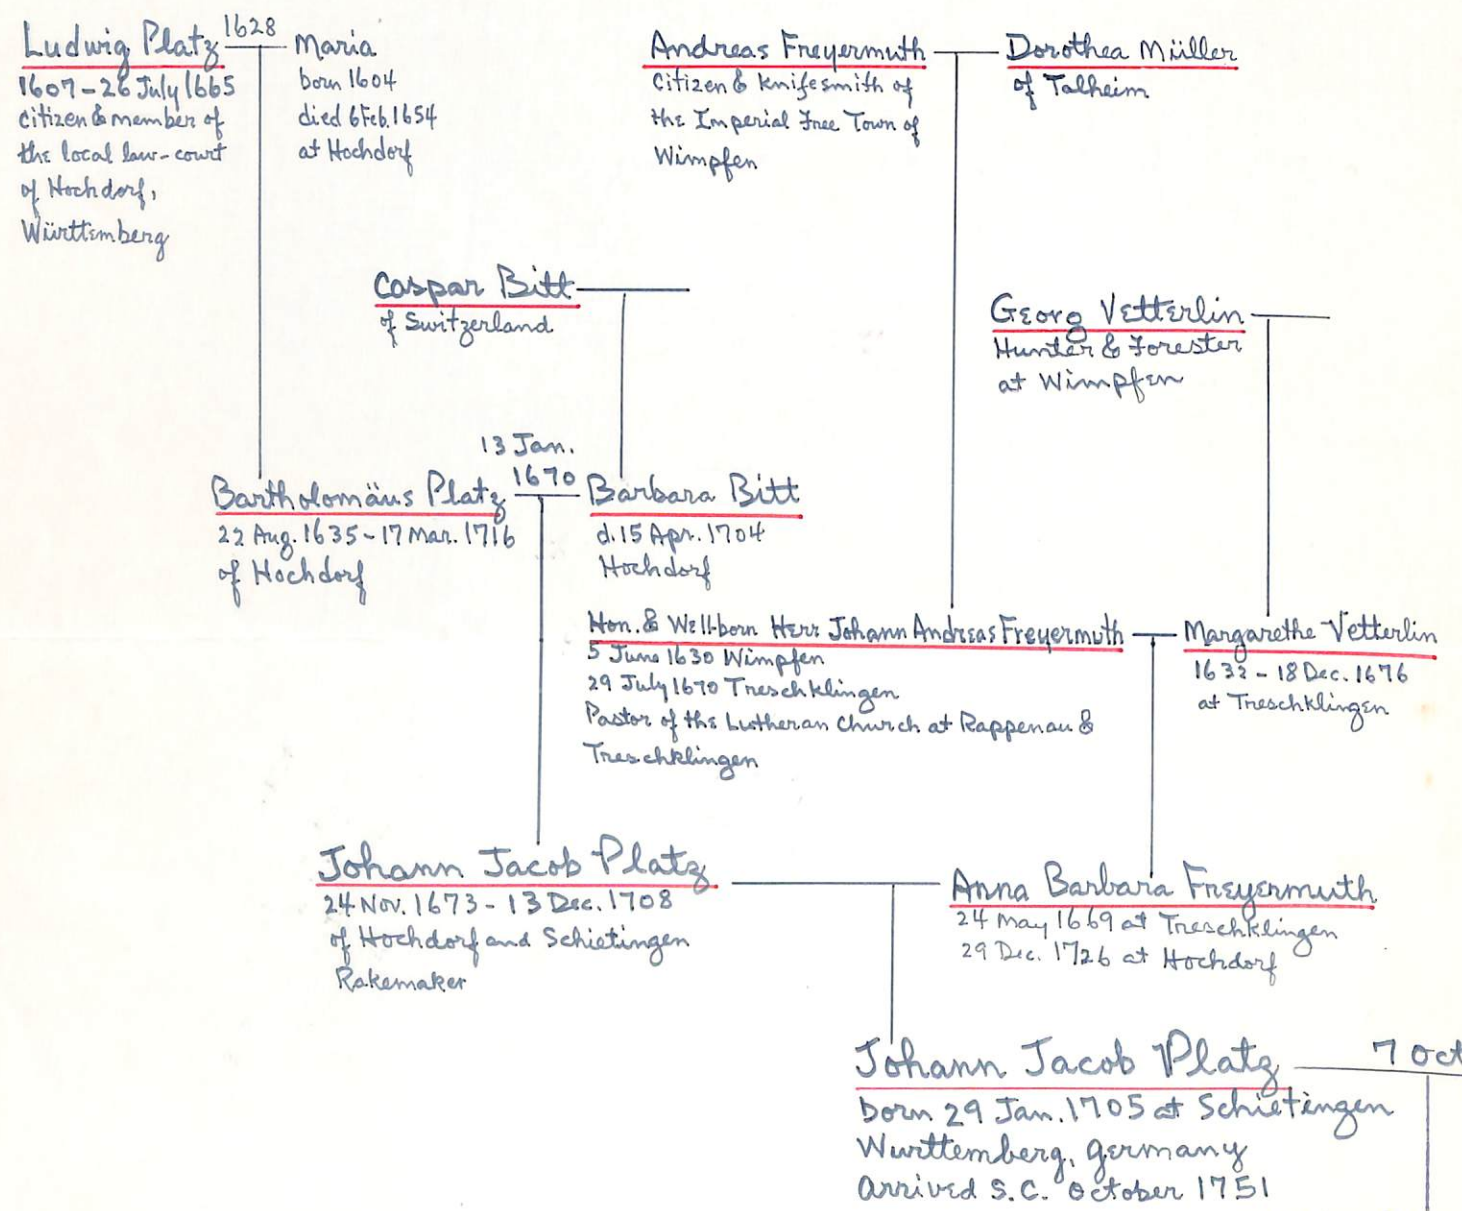 Ludwig Platz 1628 Maria
1607-26 July 1665
citizen & member of
the local law-court
of Hochdorf,
Württemberg
born 1604
died 6 Feb. 1654
at Hochdorf
Andreas Freyermuth
Citizen & Knifesmith of
the Imperial Free Town of
Wimpfen
Dorothea Müller
of Talheim
Caspar Bitt
of Switzerland
Georg Vetterlin
Hunter & Forester
at Wimpfen
13 Jan.
1670
Bartholomäus Platz
22 Aug. 1635-17 Mar. 1716
of Hochdorf
Barbara Bitt
d. 15 Apr. 1704
Hochdorf
Hon. & Well-born Herr Johann Andreas Freyermuth
5 June 1630 Wimpfen
29 July 1670 Treschklingen
Pastor of the Lutheran Church at Rappenau &
Treschklingen
Margarethe Vetterlin
1632 - 18 Dec. 1676
at Treschklingen
Johann Jacob Platz
24 Nov. 1673 - 13 Dec. 1708
of Hochdorf and Schietingen
Rakemaker
Anna Barbara Freyermuth
24 May 1669 at Treschklingen
29 Dec. 1726 at Hochdorf
Johann Jacob Platz
born 29 Jan. 1705 at Schietingen
Wurttemberg, Germany
arrived S.C. October 1751
7 Oct